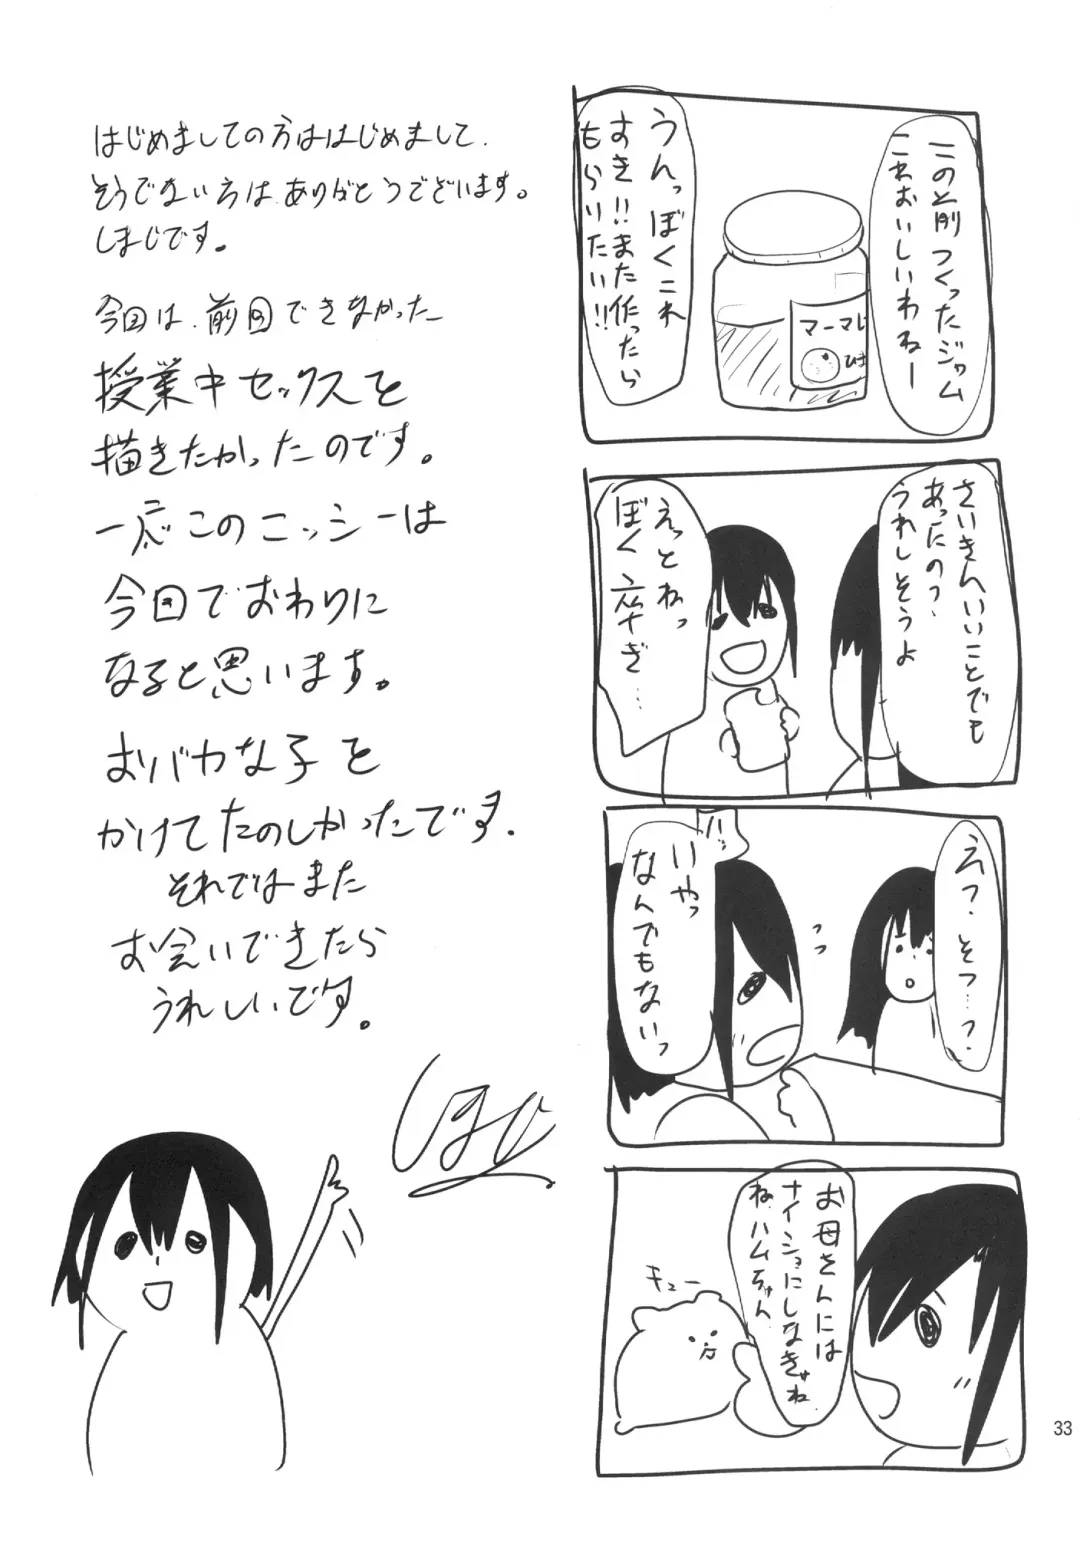 この前つくったジャム
これおいしいわねー
うんっぼくこれ
すき!!また作ったら
もらいたい!!
マーマレ
ひま
さいきんいいことでも
あったの?
うれしそうよ
えっとねっ
ぼく卒ぎ…
え?そつ…?
ハッ
いやっ
なんでもないっ
っっ
お母さんには
ナイショにしなきゃね
ね、ハムちゃん
キュー
はじめましての方ははじめまして、
そうでない方はありがとうございます。
しまじです。
今回は、前回できなかった
授業中セックスを
描きたかったのです。
一応このニッシーは
今回でおわりに
なると思います。
おバカな子を
かけてたのしかったです。
それではまた
お会いできたら
うれしいです。
しまじ
33